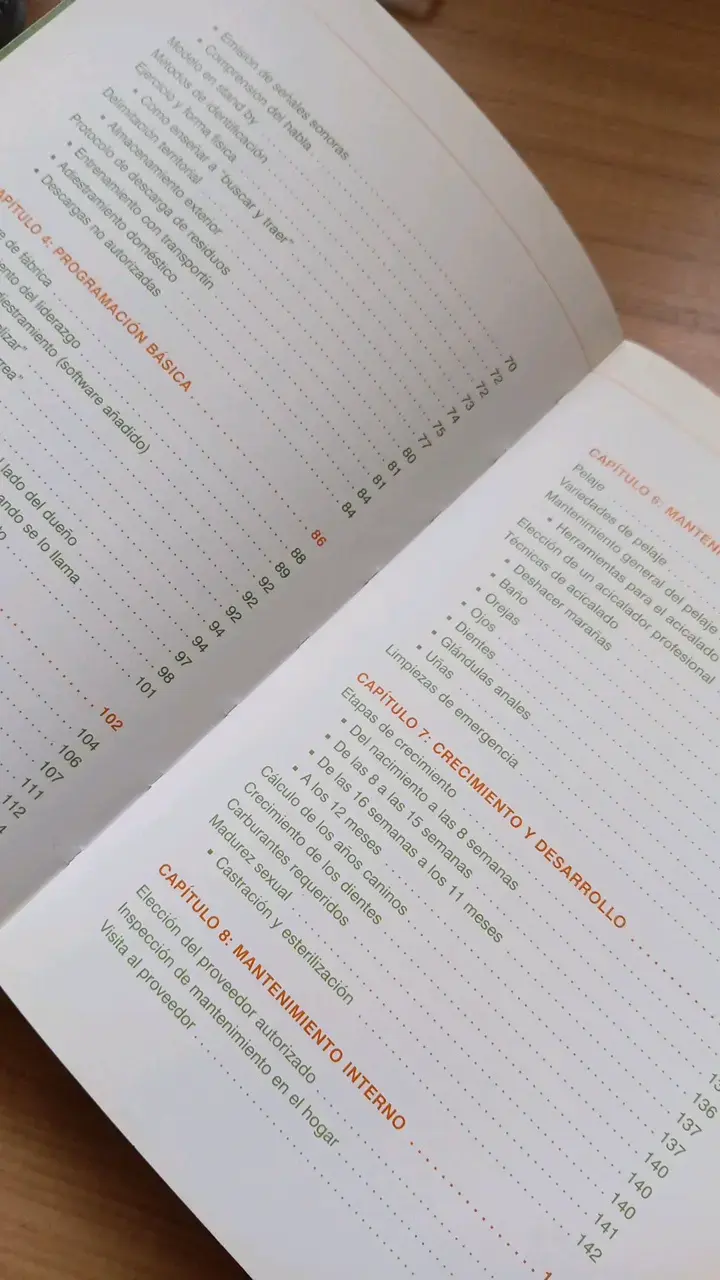 • Emisión de señales sonoras 70
• Comprensión del habla 72
Modelo en stand by 72
Métodos de identificación 73
Ejercicio y forma física 74
• Cómo enseñar a "buscar y traer" 75
Delimitación territorial 77
• Almacenamiento exterior 80
Protocolo de descarga de residuos 81
• Entrenamiento con transportín 81
• Adiestramiento doméstico 84
• Descargas no autorizadas 84
CAPÍTULO 4: PROGRAMACIÓN BÁSICA 86
de fábrica 88
del liderazgo 89
(software añadido) 92
92
92
94
94
97
lado del dueño 98
se lo llama 101
102
104
106
107
111
112
CAPÍTULO 6:
Pelaje
Variedades de pelaje
Mantenimiento general del pelaje
• Herramientas para el acicalado
Elección de un acicalador profesional
Técnicas de acicalado
• Deshacer marañas
• Baño
• Orejas
• Ojos
• Dientes
• Glándulas anales
• Uñas
Limpiezas de emergencia
CAPÍTULO 7: CRECIMIENTO Y DESARROLLO
Etapas de crecimiento
• Del nacimiento a las 8 semanas
• De las 8 a las 15 semanas
• De las 16 semanas a los 11 meses
• A los 12 meses
Cálculo de los años caninos
Crecimiento de los dientes
Carburantes requeridos
Madurez sexual
• Castración y esterilización
136
137
137
140
140
141
142
CAPÍTULO 8: MANTENIMIENTO INTERNO
Elección del proveedor autorizado
Inspección de mantenimiento en el hogar
Visita al proveedor